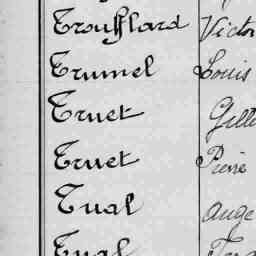 Trouflard Victor
Trumel Louis
Truet
Truet Pierre
Tual Ange
Tual